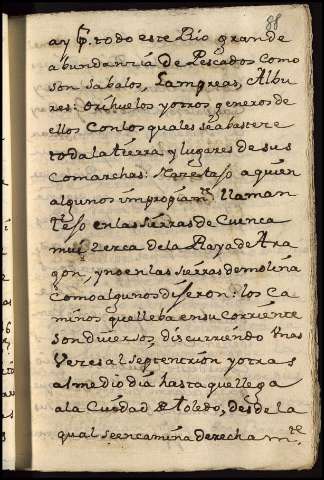 88
ay P. todo este Rio grande
abundanzia de Pescados como
son sabalos, Lampreas, Albu
res: orihuelos y otros generos de
ellos con los quales se abastere
toda la tierra y lugares de sus
Comarchas: Nare taso a quien
algunos impropiam.te llaman
teso en las sierras de Cuenca
mui zerca de la Raya de Ara
gon, y no en las sierras de molina
como algunos diseron: los Ca
minos que lleba en su corriente
son diversos discurriendo Vnas
Veces al septentrion y otras
al medio dia hasta que llega
a la Ciudad de toledo, desde la
qual se encamina derecha m.te